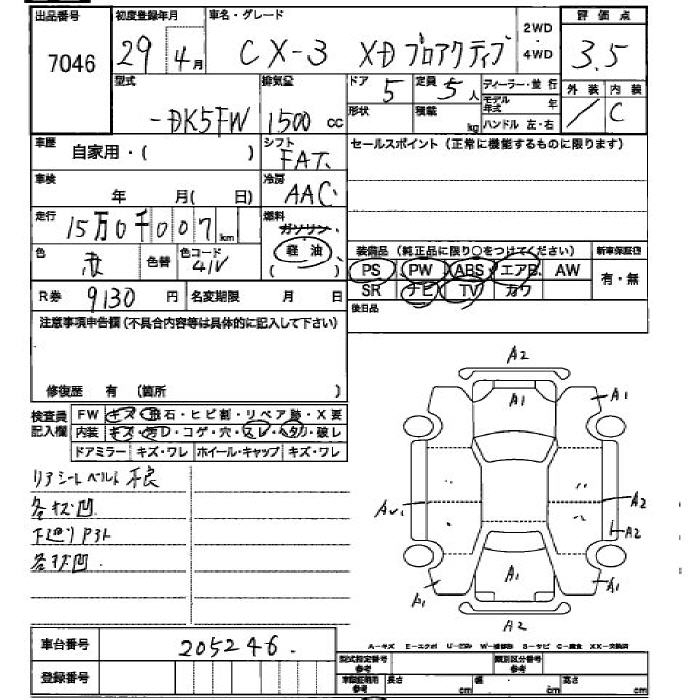 出品番号 初度登録年月 車名・グレード 2WD・4WD 評価点
7046 29年4月 CX-3 XD プロアクティブ 3.5
外装 内装
/ C
型式 排気量 ドア 定員 ディーラー・並行
-DK5FW 1500cc 5 5人 モデル年式 年
形状 積載 kg ハンドル 左・右
車歴 自家用・( ) シフト FAT セールスポイント(正常に機能するものに限ります)
車検 年 月(日) 冷房 AAC
走行 15万0千007km 燃料 ガソリン 軽油 ( )
色 赤 色替 色コード 41V
装備品(純正品に限り○をつけてください) 新車保証書
PS PW ABS エアB AW 有・無
SR ナビ TV カワ
R券 9130円 名変期限 月 日 後日品
注意事項申告欄(不具合内容等は具体的に記入して下さい)
修復歴 有 (箇所 )
検査員記入欄 FW キズ・飛石・ヒビ割・リペア跡・X要
内装 キズ・汚レ・コゲ・穴・スレ・ヘタリ・破レ
ドアミラー キズ・ワレ ホイール・キャップ キズ・ワレ
リアシートベルト不良
各コスリ凹
下廻リサビ
A2
A1 A1 A1
Av1 A2
A2
A1 A1 A1
A2
A-キズ E-エクボ U-凹み W-補修跡 S-サビ C-腐食 XX-交換済
車台番号 205246
登録番号
型式指定番号 参考 類別区分番号 参考
長さ cm 幅 cm 高さ cm